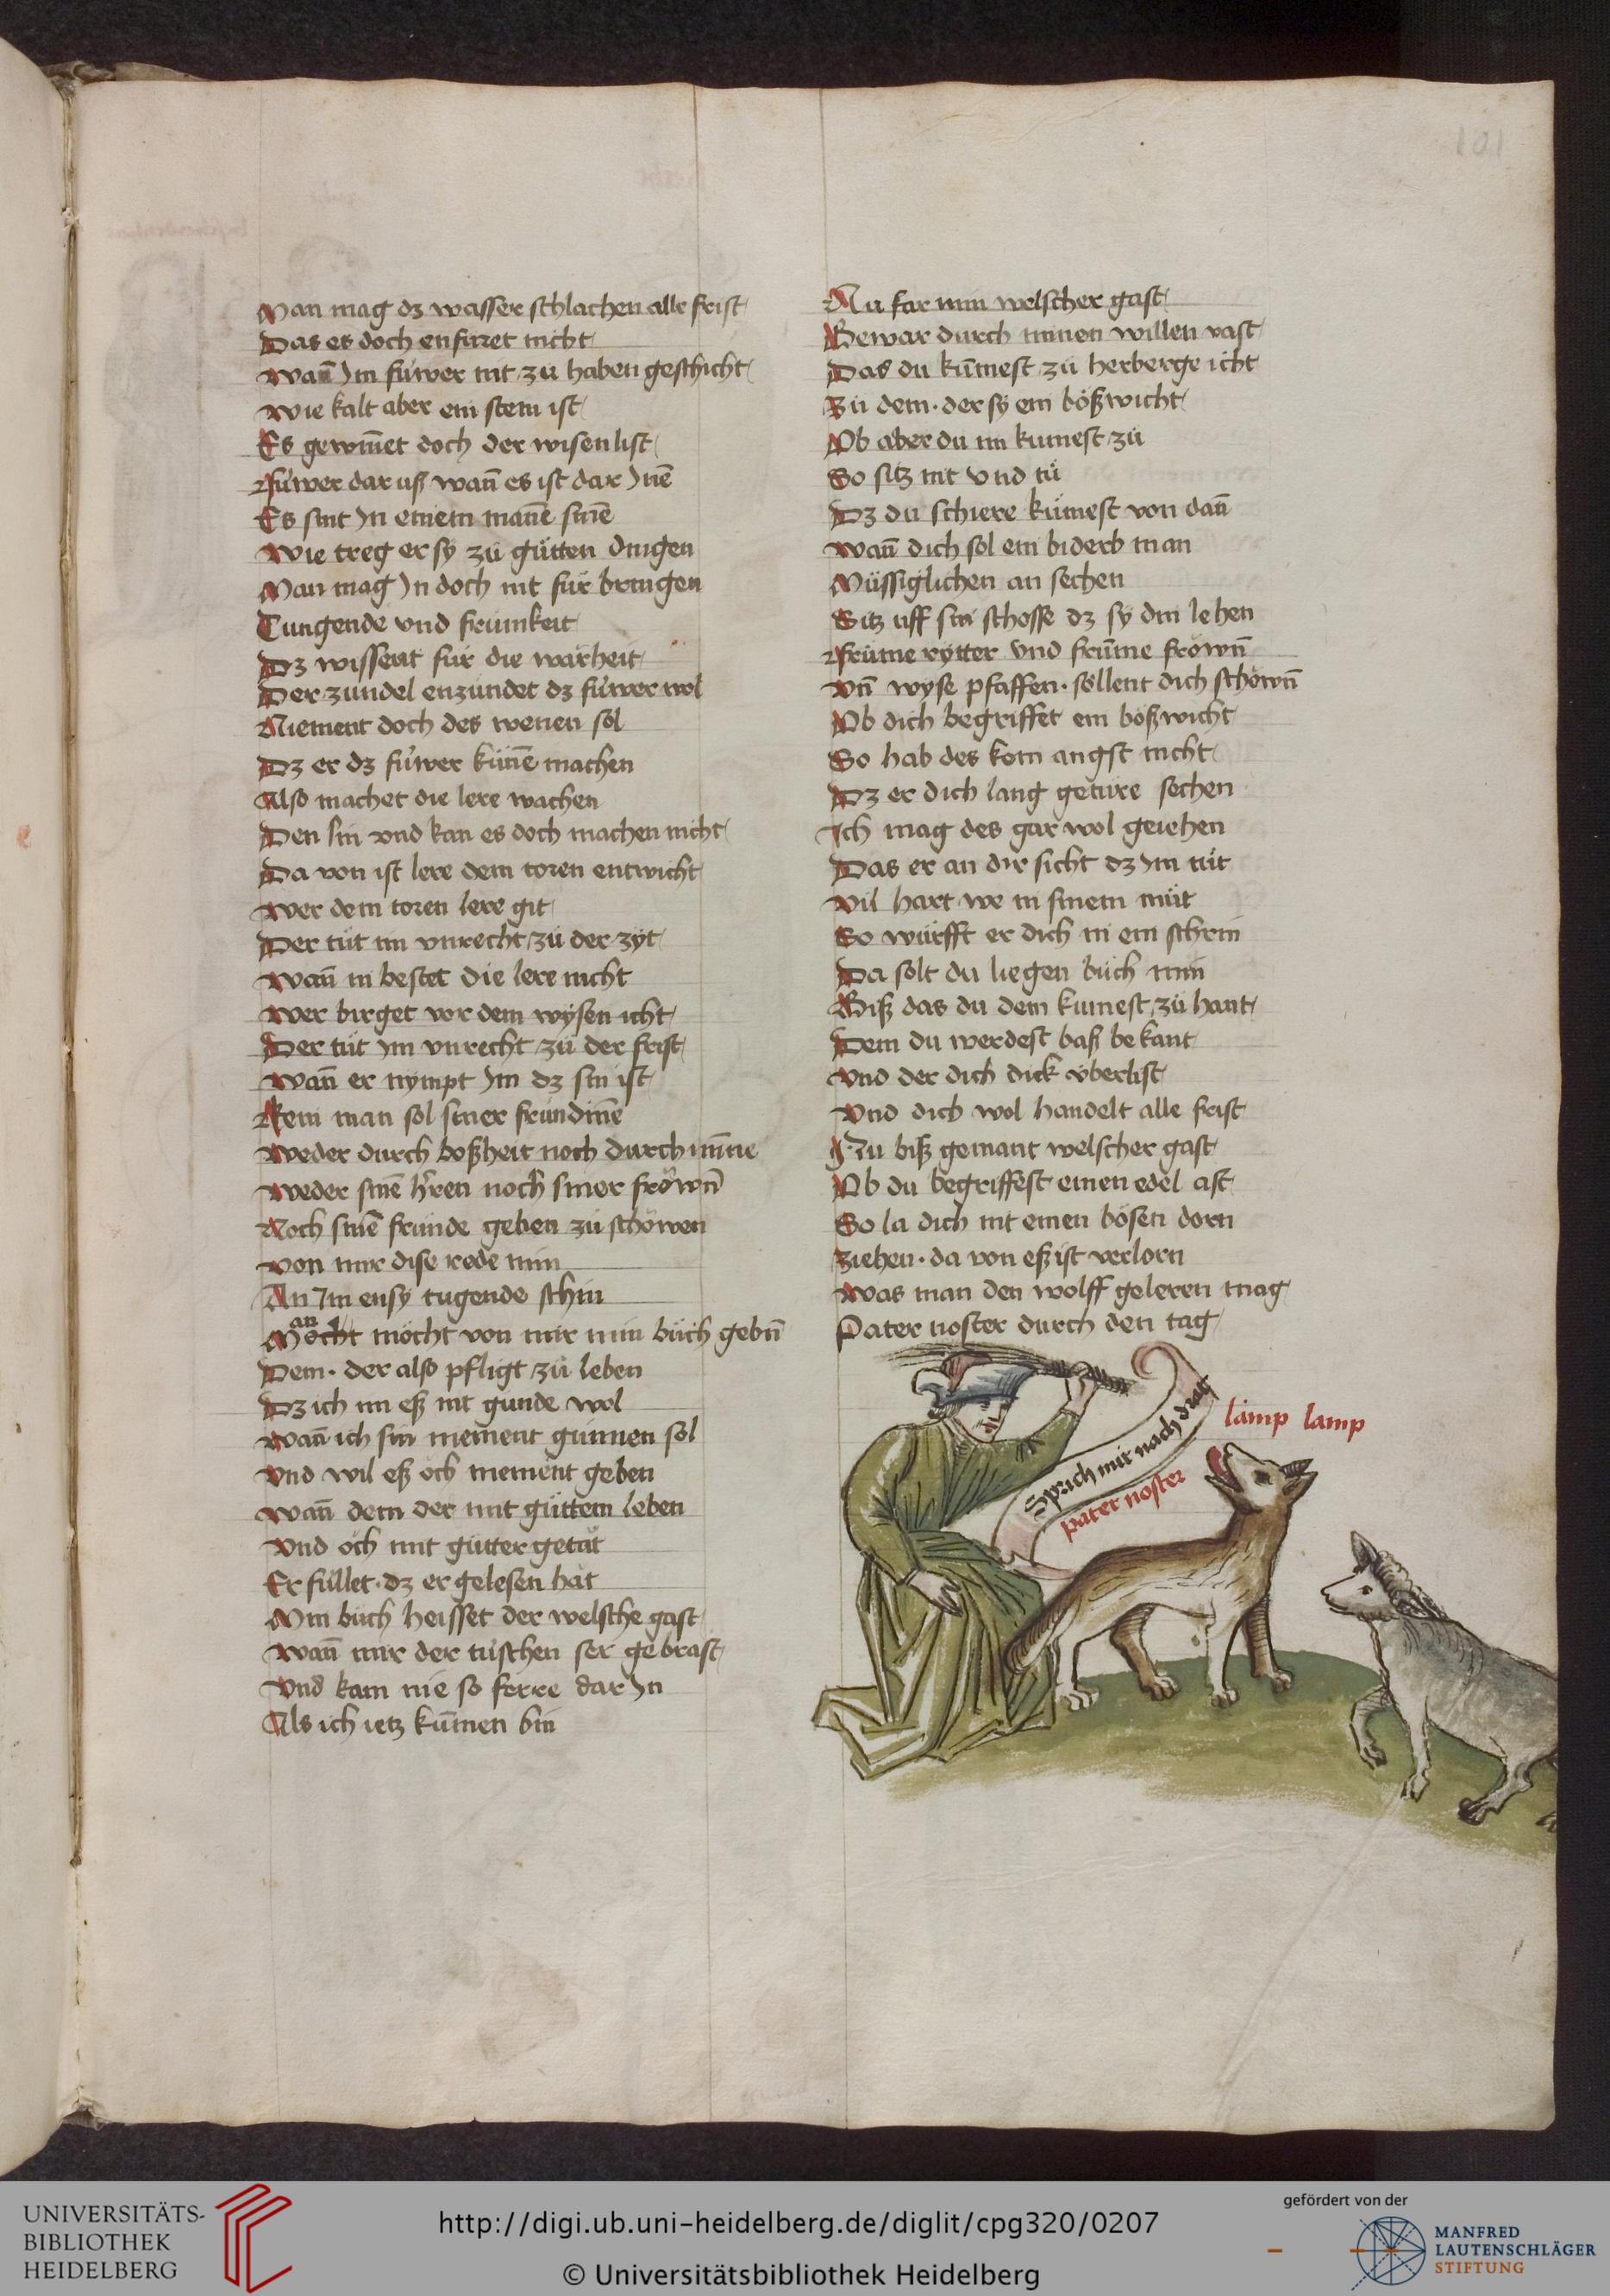 101
Man mag dz wasser schlachen alle frist
Das es doch enfuret nicht
wan̄ Im fúwer nit zu haben geschicht
wie kalt aber ein stein ist
Es gewin̄et doch der wisen list
fúwer dar uß wan̄ es ist dar Inē
Es sint In einem manē sinē
wie treg er sy zů gůtten dingen
Man mag In doch nit für bringen
Tungende vnd frumkeit
Dz wissent für die warheit
Der zundel enzúndet dz fúwer wol
Niement doch des wenen sol
Dz er dz fúwer kúnē machen
Also machet die lere wachen
Den sin vnd kan es doch machen nicht
Da von ist lere dem toren entwicht
wer dem toren lere git
Der tůt im vnrecht zů der zyt
wan̄ in bestet die lere nicht
wer birget vor dem wysen icht
Der tůt Im vnrecht zů der frist
wan̄ er nympt Im dz sin ist
Kein man sol siner fründinē
weder durch boßheit noch durch min̄e
weder sinē h̄ren noch siner frowen̄
Noch sinē fründe geben zů schöwen
von mir dise rede min
An Im ensy tugende schin
an
Mocht möcht von mir min bůch gebn̄
Dem. der also pfligt zů leben
Dz ich im eß nit gunde wol
wan̄ ich sin niement gunnen sol
vnd wil eß och niement geben
wan̄ dem der mit gůttem leben
vnd och mit gůtter getät
Er füllet. dz er gelesen hät
Min bůch heisset der welsche gast
wan̄ mir der tüschen ser gebrast
vnd kam nie so ferre dar In
Als ich ietz kum̄en bin
Nu far min welscher gast
Bewar durch minen willen vast
Das du kum̄est zů herberge icht
Zů dem. der sy ein bößwicht
Ob aber du im kumest zů
So sitz nit vnd tů
Dz du schiere kümest von dan̄
wan̄ dich sol ein biderb man
Müssiglichen an sechen
Sitz uff sin schosse dz sy din lehen
frúme rytter vnd frum̄e frown̄
vn̄ wyse pfaffen. söllent dich schöwn̄
Ob dich begriffet ein bößwicht
So hab des kein angst nicht
Dz er dich lang getúre sechen
Ich mag des gar wol geiehen
Das er an dir sicht dz Im tůt
vil hart we in sinem můt
So wúrfft er dich in ein schrin
Da solt du liegen bůch min
Biß das du dem kumest zů hant
Dem du werdest baß bekant
vnd der dich dick überlist
vnd dich wol handelt alle frist
Nu biß gemant welscher gast
Ob du begriffest einen edel ast
So la dich nit einen bösen dorn
ziehen. da von eß ist verlorn
was man den wolff geleren mag
Pater noster durch den tag
Sprich mir nach drat
pater noster
lamp lamp
UNIVERSITÄTS-
BIBLIOTHEK
HEIDELBERG
http://digi.ub.uni-heidelberg.de/diglit/cpg320/0207
© Universitätsbibliothek Heidelberg
gefördert von der
MANFRED
LAUTENSCHLÄGER
STIFTUNG